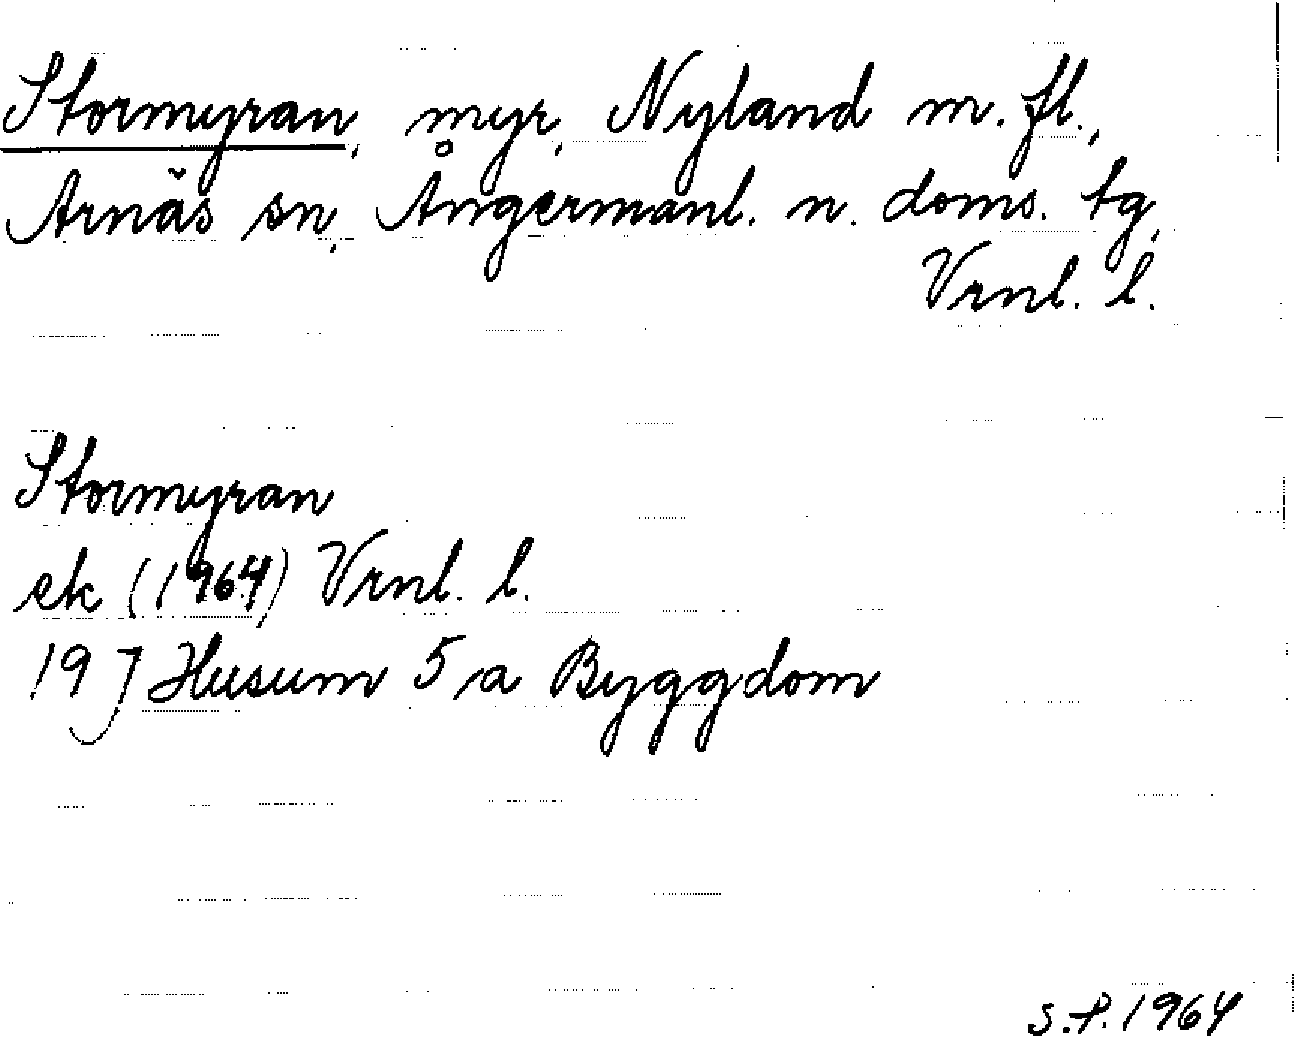 Stormyran, myr, Nyland m. fl.,
Arnäs sn, Ångermanl. n. doms. tg,
Vrnl. l.
Stormyran
ek (1964) Vrnl. l.
19 J Husum 5 a Byggdom
S.P. 1964